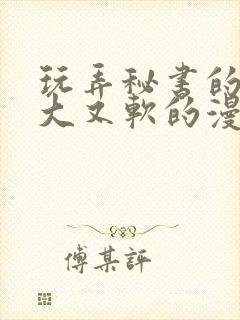 玩弄秘书的
大又軟的漫
傅某評